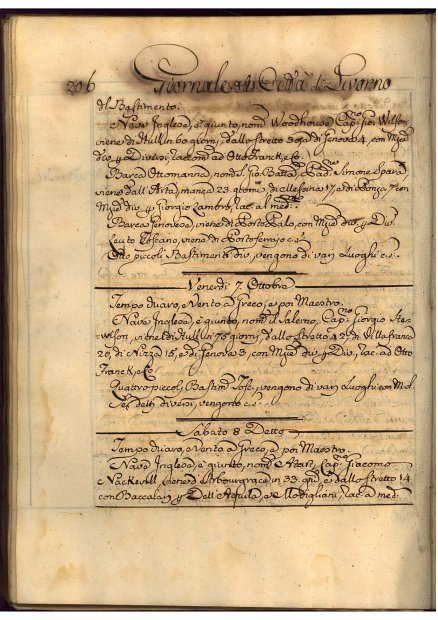 206 Giornale della Città di Livorno
del Bastimento.
Nave Inglese, è giunto, nom.ª Woodhouse Cap.no Gio: Wilson
viene di Hull in 60 giorni, dallo Stretto 30, a di Genova 4, con
div. p Diversi, racc. ad Otto Franck, e C.º
Barca Ottomana, nom.ª S. Gio Batta, Simone Sparà
viene dall' Arta, manca 23. giorni, di 17, e di 7, con
div. p Giorgio rac. al med.mo
Barca Genovese, viene di Porto Palo, con div. p Div.
Leuto Toscano, viene di Portoferraio
Otto piccoli Bastimenti div. vengono di varj Luoghi
Venerdi 7 Ottobre
Tempo vario, e Vento a Greco, e poi Maestro.
Nave Inglese, è giunto, nom.ª il Salerno, Cap.no Giorgio
viene di Hull in 75 giorni, dallo Stretto 42, di Villafranca
20, di Nizza 15, e di Genova 3, con div. p Div. rac. ad Otto
Franck, e C.º
Quattro piccoli Bastim.ti vengono di varj Luoghi con
Sei detti diversi, vengono
Sabato 8 Detto
Tempo vario, e Vento a Greco, e poi Maestro.
Nave Inglese, è giunto, nom.ª Cap.no Giacomo
viene d' in 33 gni, e dallo Stretto 14
con Baccalari, p Dell'Aquila, e Modigliani, rac. a med.